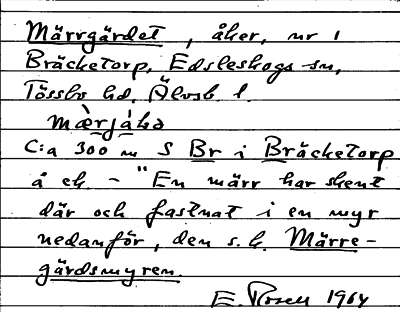 Märrgärdet, åker, nr 1
Bräcketorp, Edsleskogs sn,
Tössbo hd, Älvsb. l.
mær̀já̱ḷə
C:a 300 m S Br i Bräcketorp
å ek – "En märr har skent
där och fastnat i en myr
nedanför, den s.k. Märre-
gärdsmyren.
E. Rosell 1964